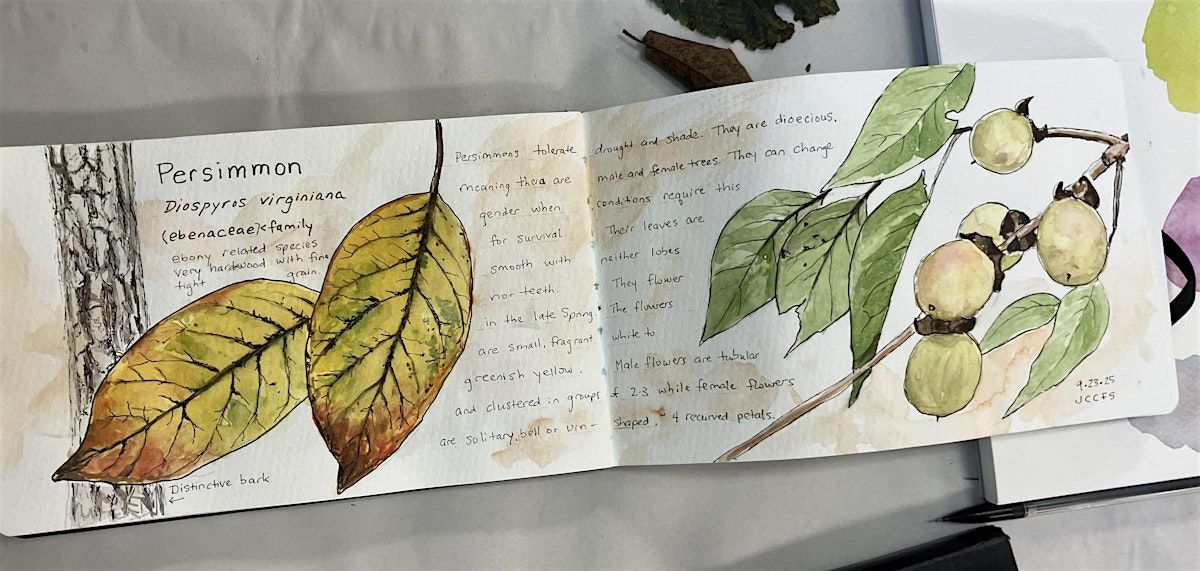 Persimmon
Diospyros virginiana
(ebenaceae)<family
ebony related species
very hardwood with fine
tight grain.
Distinctive bark
Persimmons tolerate drought and shade. They are dioecious,
meaning there are male and female trees. They can change
gender when conditions require this
for survival. Their leaves are
smooth with neither lobes
nor teeth. They flower
in the late Spring. The flowers
are small, fragrant white to
greenish yellow. Male flowers are tubular
and clustered in groups of 2-3 while female flowers
are solitary, bell or urn- shaped. 4 recurved petals.
9.23.25
JCCFS